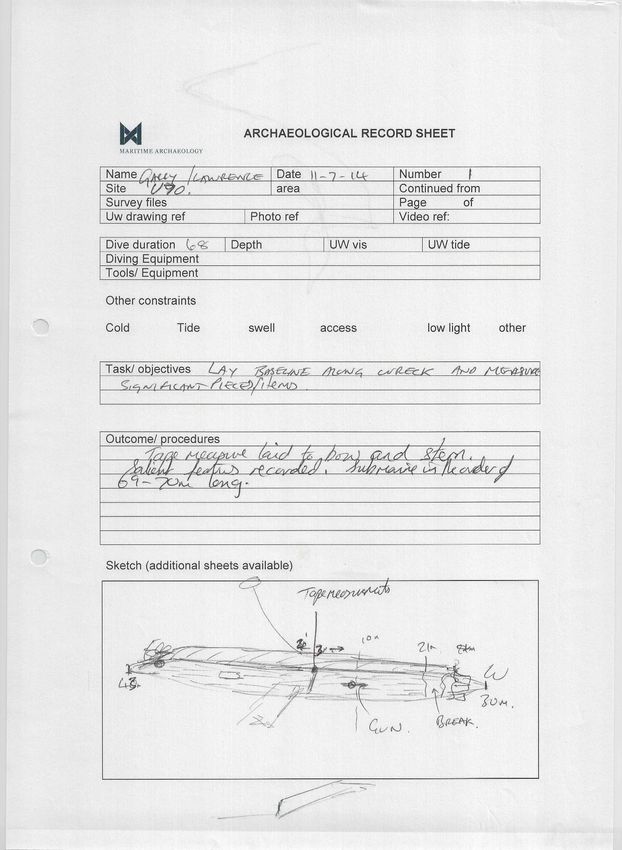 ARCHAEOLOGICAL RECORD SHEET
MARITIME ARCHAEOLOGY
Name GARRY / LAWRENCE Date 11-7-14 Number 1
Site U90. area Continued from
Survey files Page of
Uw drawing ref Photo ref Video ref:
Dive duration 68 Depth UW vis UW tide
Diving Equipment
Tools/ Equipment
Other constraints
Cold Tide swell access low light other
Task/ objectives LAY BASELINE ALONG WRECK AND MEASURE
SIGNIFICANT PIECES/ITEMS.
Outcome/ procedures
Tape measure laid to bow and stern.
Salient features recorded. Submarine in the order of
69-70m long.
Sketch (additional sheets available)
Tape measurements
10m
21m
W
43
30m.
GUN.
BREAK.